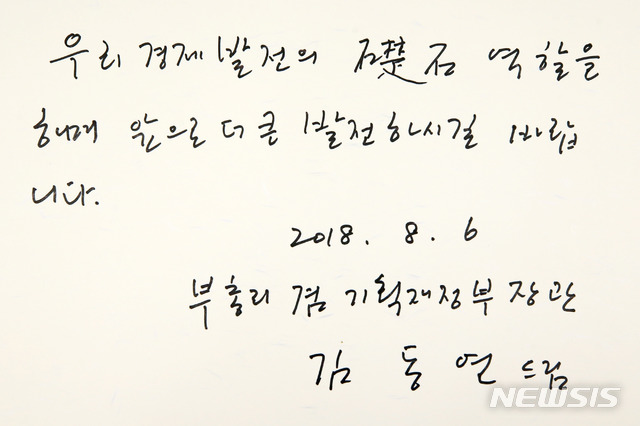 우리 경제발전의 礎石 역할을
하며 앞으로 더 큰 발전하시길 바랍
니다.
2018. 8. 6
부총리 겸 기획재정부장관
김동연 드림
NEWSIS